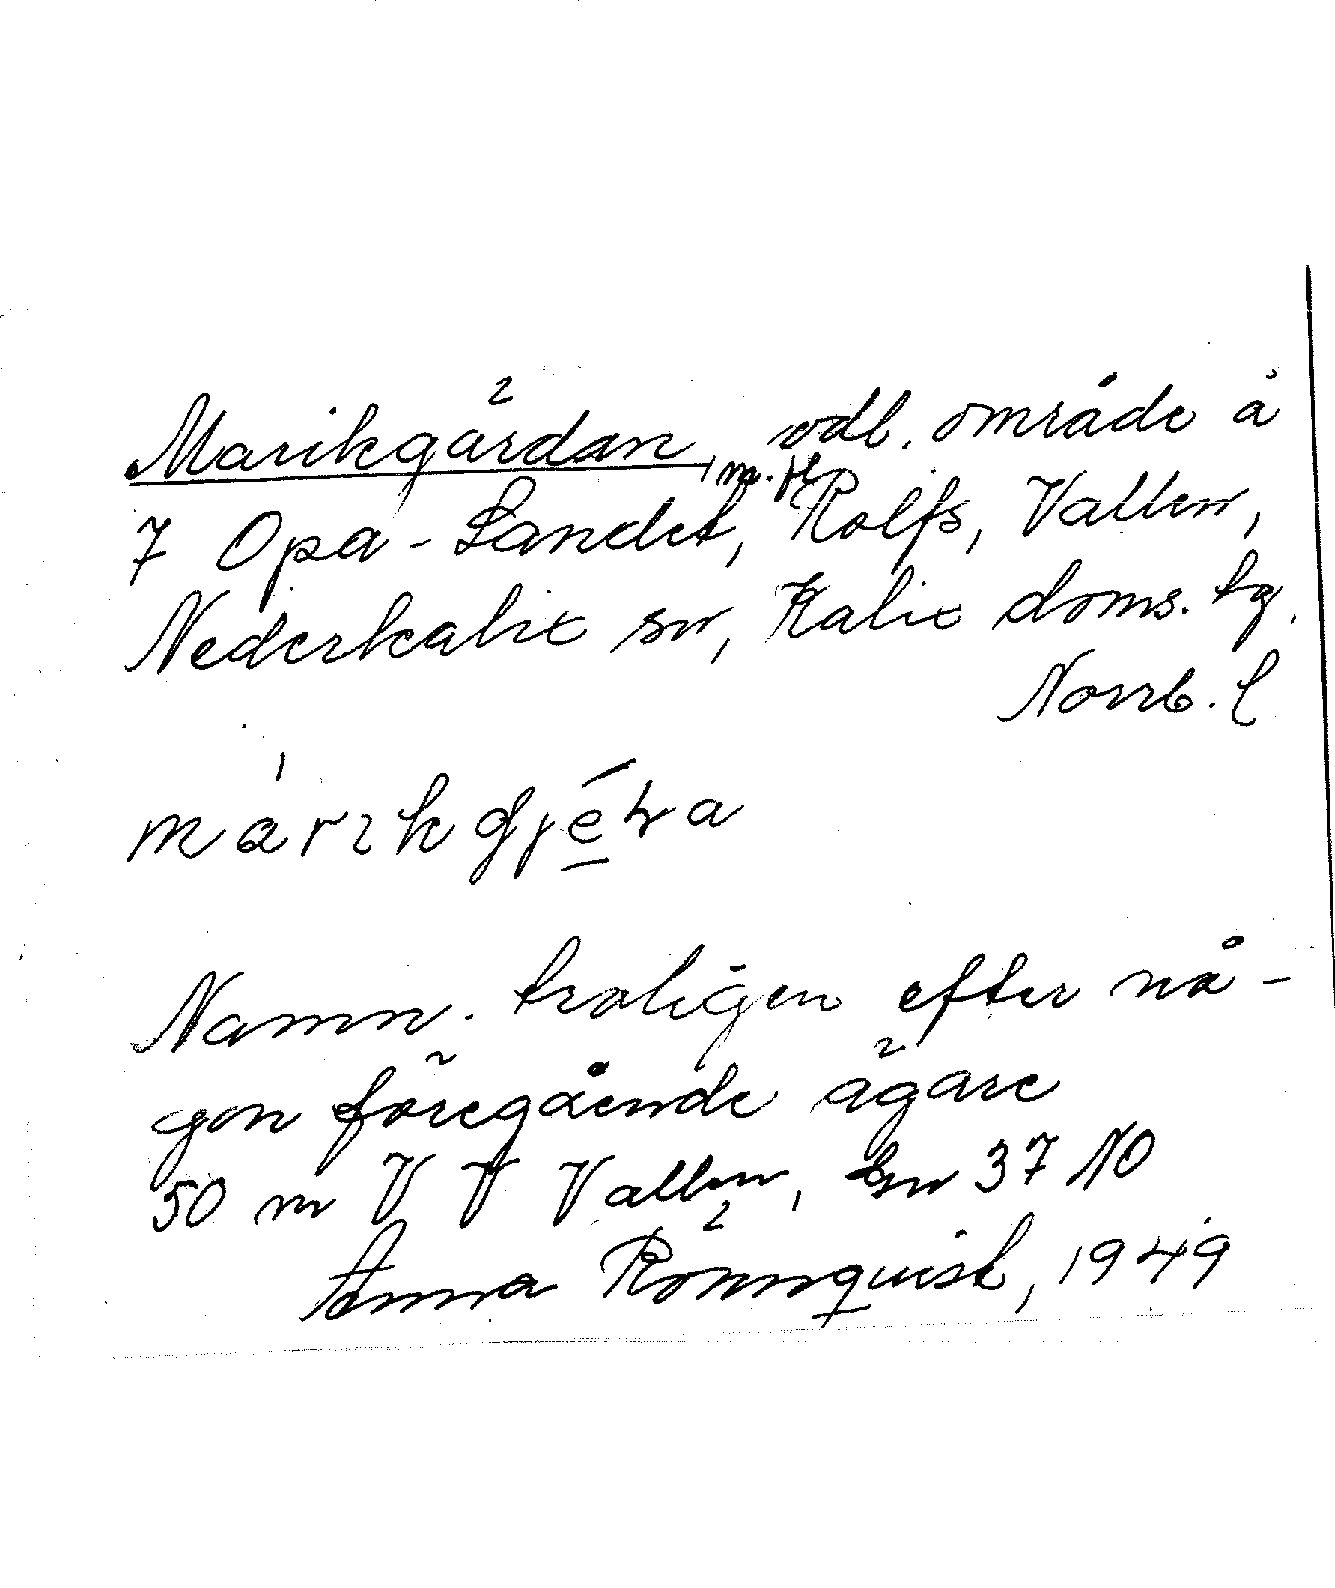 Marikgärdan, m. fl. odl. område å
7 Opa-Landet, Rolfs, Vallen,
Nederkalix sn, Kalix doms. tg.
Norrb. l
Namn. troligen efter nå-
gon föregående ägare
50 m V V Vallen, 37 NO
Anna Rönnquist, 1949